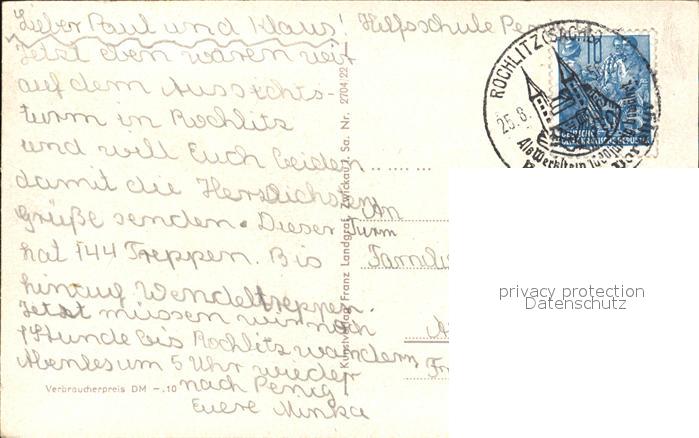 Lieber Paul und Klaus! Hilfsschule Penig
Jetzt eben waren wir
auf dem Aussichts-
turm in Rochlitz
und will Euch beiden
damit die Herzlichsten
Grüße senden. Dieser Turm
hat 144 Treppen. Bis
hinauf Wendeltreppen.
Jetzt müssen wir noch
1 Stunde bis Rochlitz wandern
Abends um 5 Uhr wieder
nach Penig
Euere Minka
Verbraucherpreis DM -.10
Kunstverlag Franz Landgraf, Zwickau i. Sa. Nr. 2704 22
ROCHLITZ (SACHS)
25.8.
Als Werkstein
10
DEUTSCHE
DEMOKRATISCHE REPUBLIK
An
Familie
privacy protection
Datenschutz